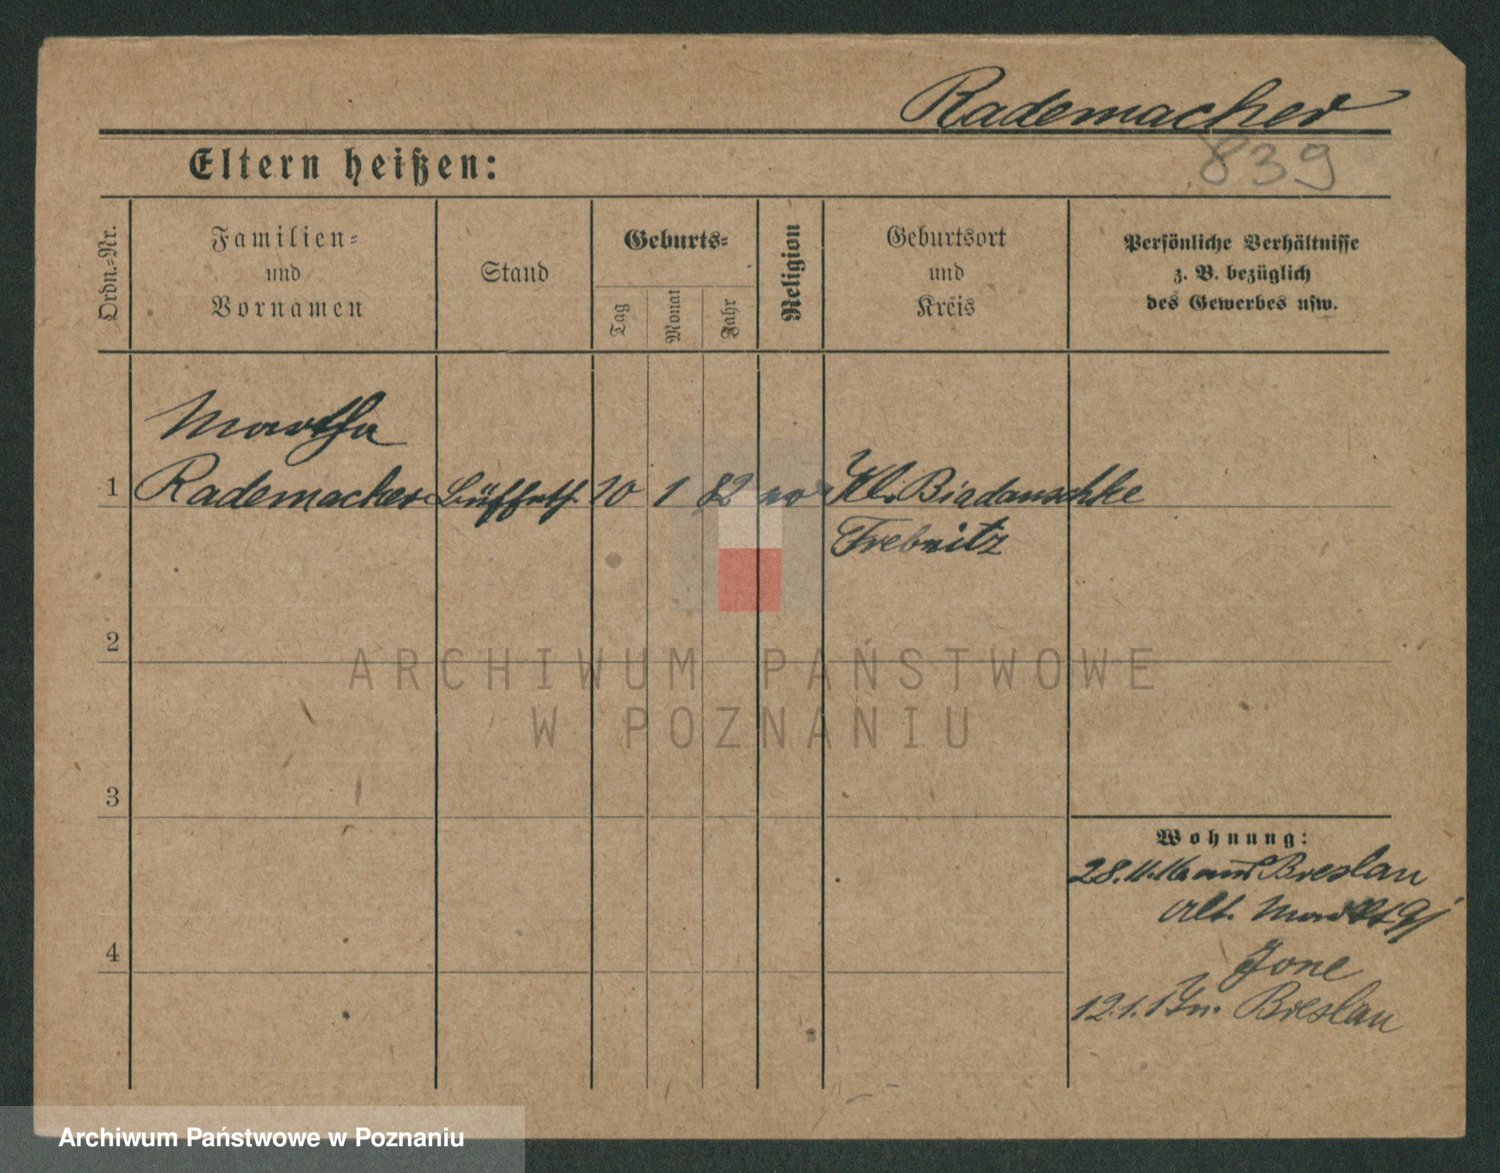 Rademacher
839
Eltern heißen:
Ordn.-Nr.
Familien-
und
Vornamen
Stand
Geburts-
Tag
Monat
Jahr
Religion
Geburtsort
und
Kreis
Persönliche Verhältnisse
z. B. bezüglich
des Gewerbes usw.
Martha
1 Rademacher 10 1 82 Kl. Biadauschke
Trebnitz
2
ARCHIWUM PAŃSTWOWE
W POZNANIU
3
Wohnung:
28.11.16 Breslau
Markt
4
12.1. Breslau
Archiwum Państwowe w Poznaniu